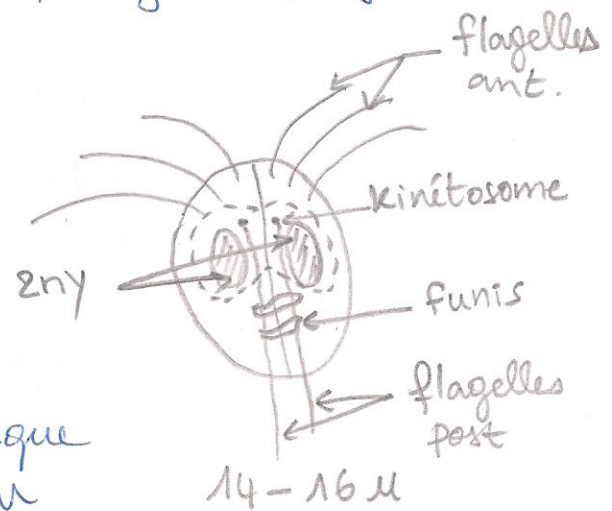 flagelles
ant.
kinétosome
2ny
funis
flagelles
post
que
14-16 µ